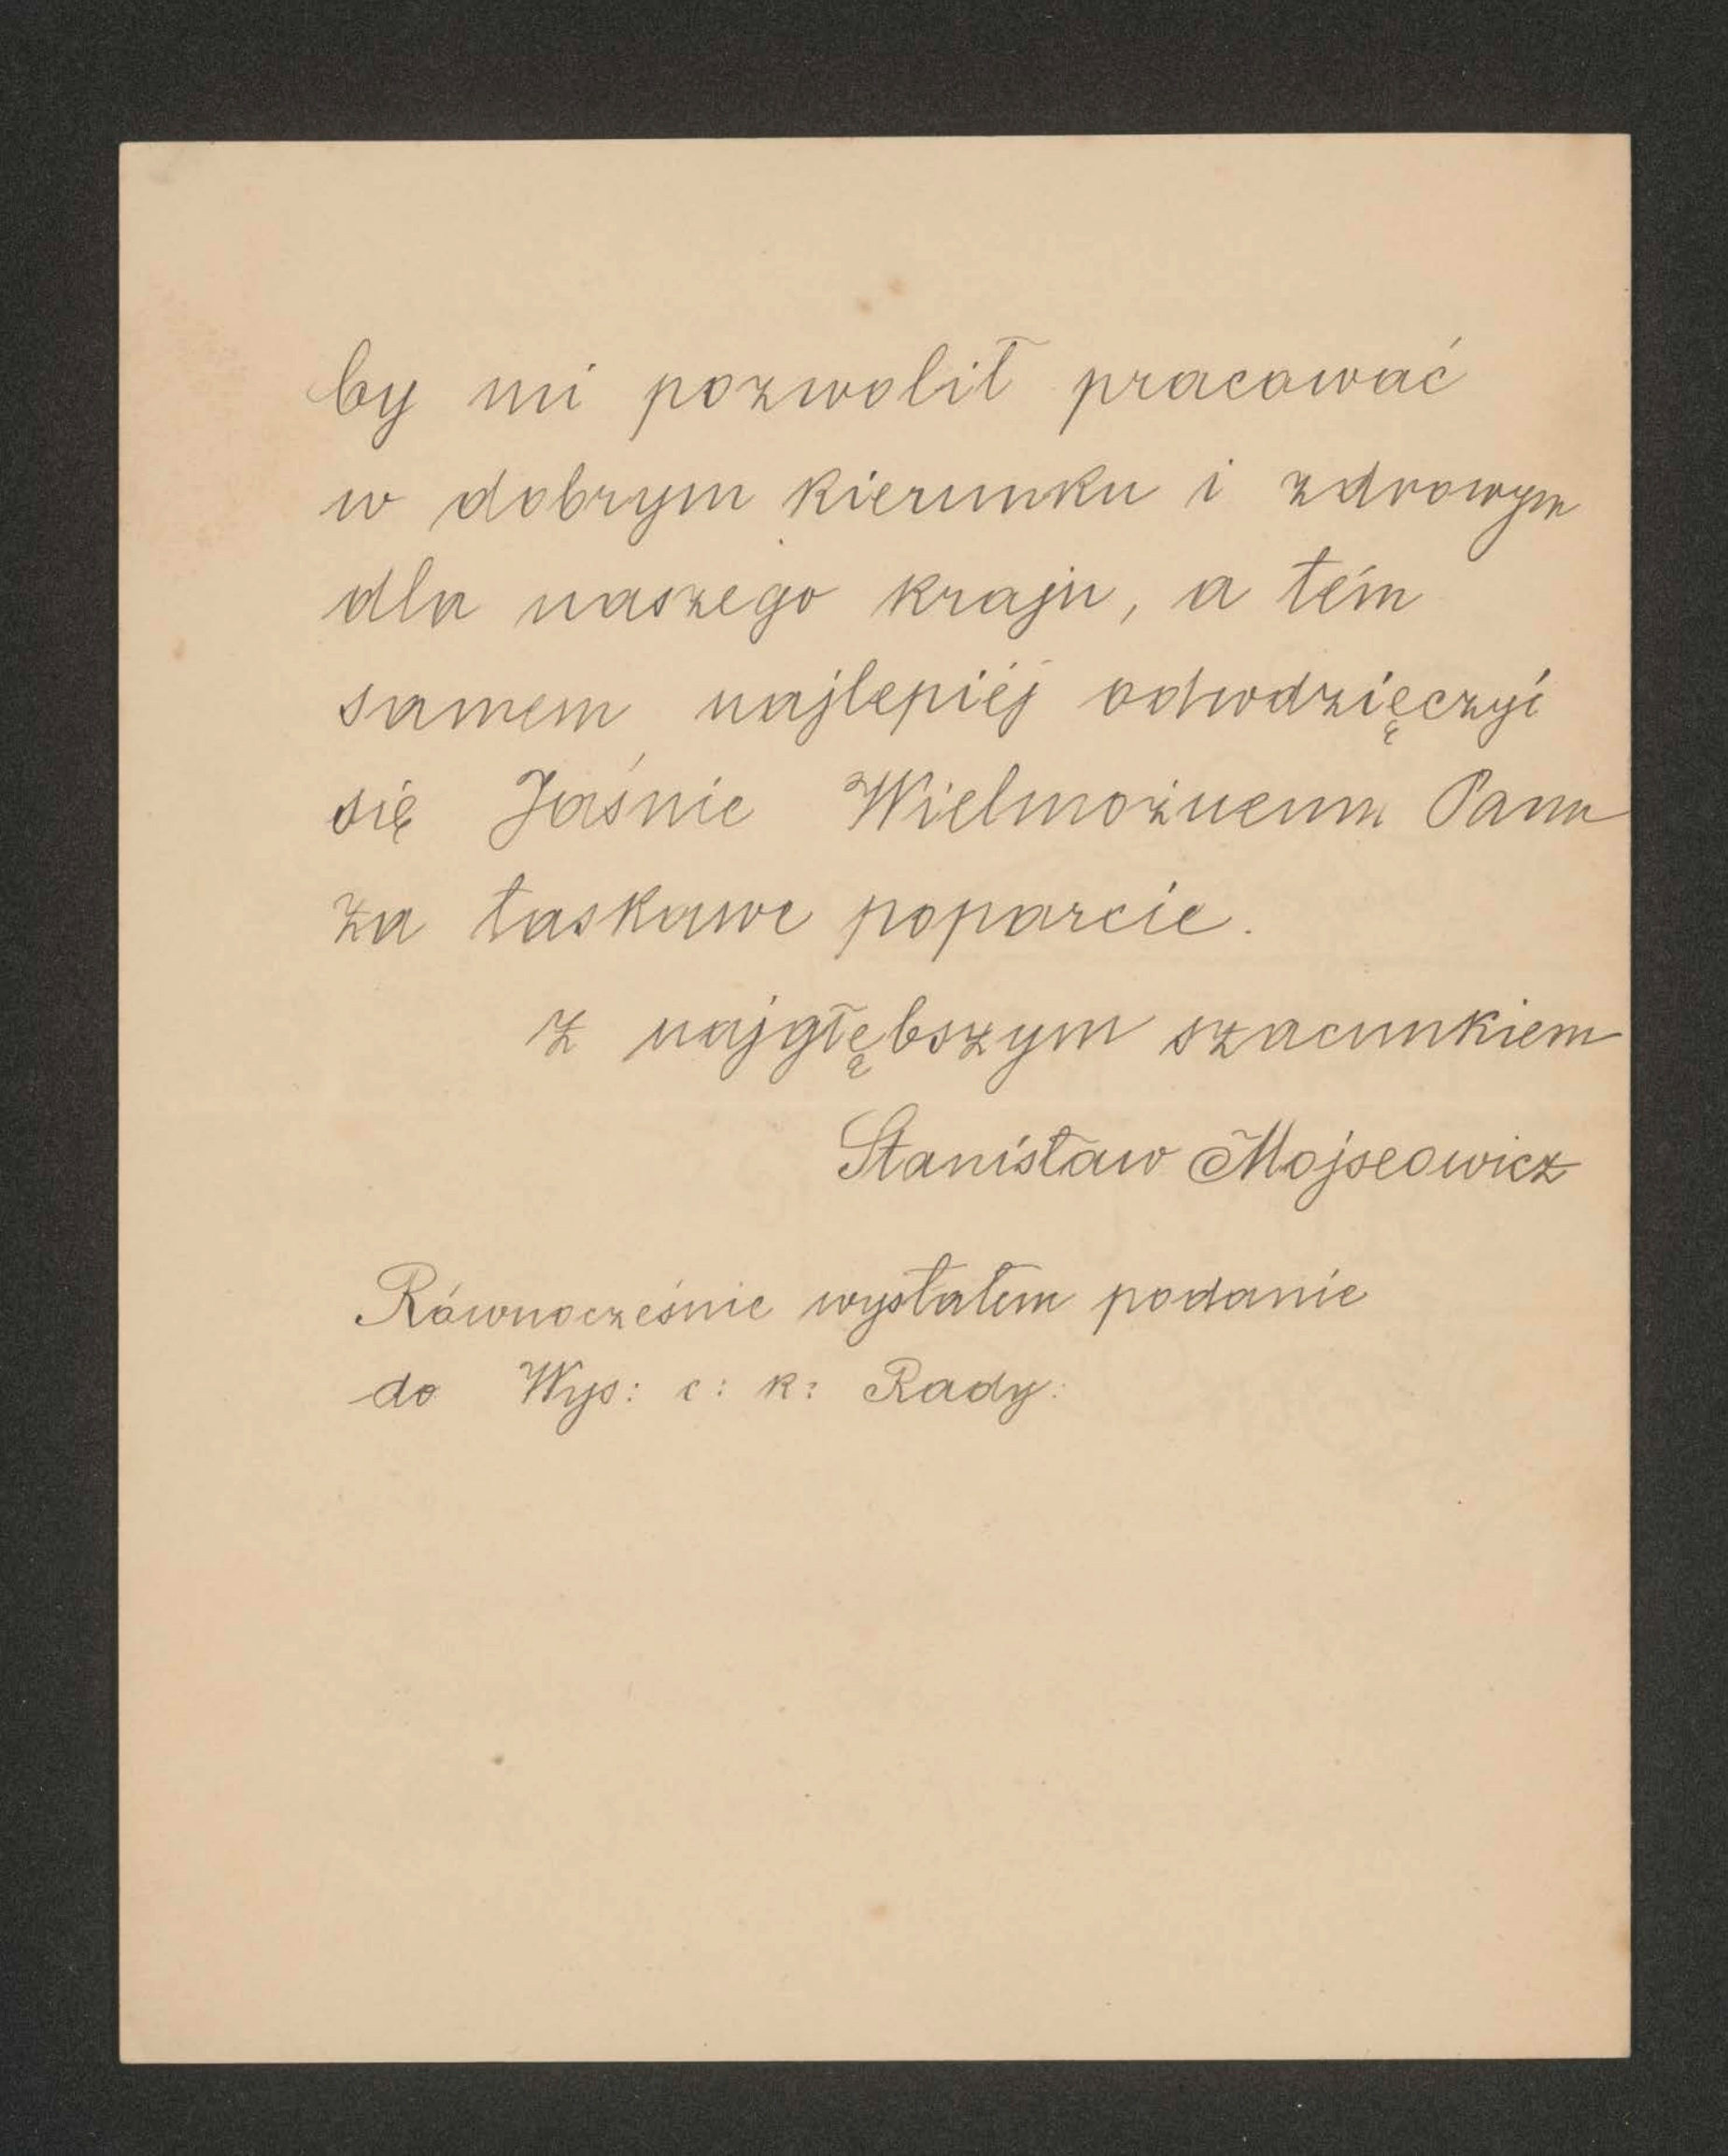 by mi pozwolił pracować
w dobrym kierunku i zdrowym
dla naszego kraju, a tém
samem najlepiéj odwdzięczyć
się Jaśnie Wielmożnemu Panu
za łaskawe poparcie.
z najgłębszym szacunkiem
Stanisław Mojseowicz
Równocześnie wysłałem podanie
do Wys: c: k: Rady.